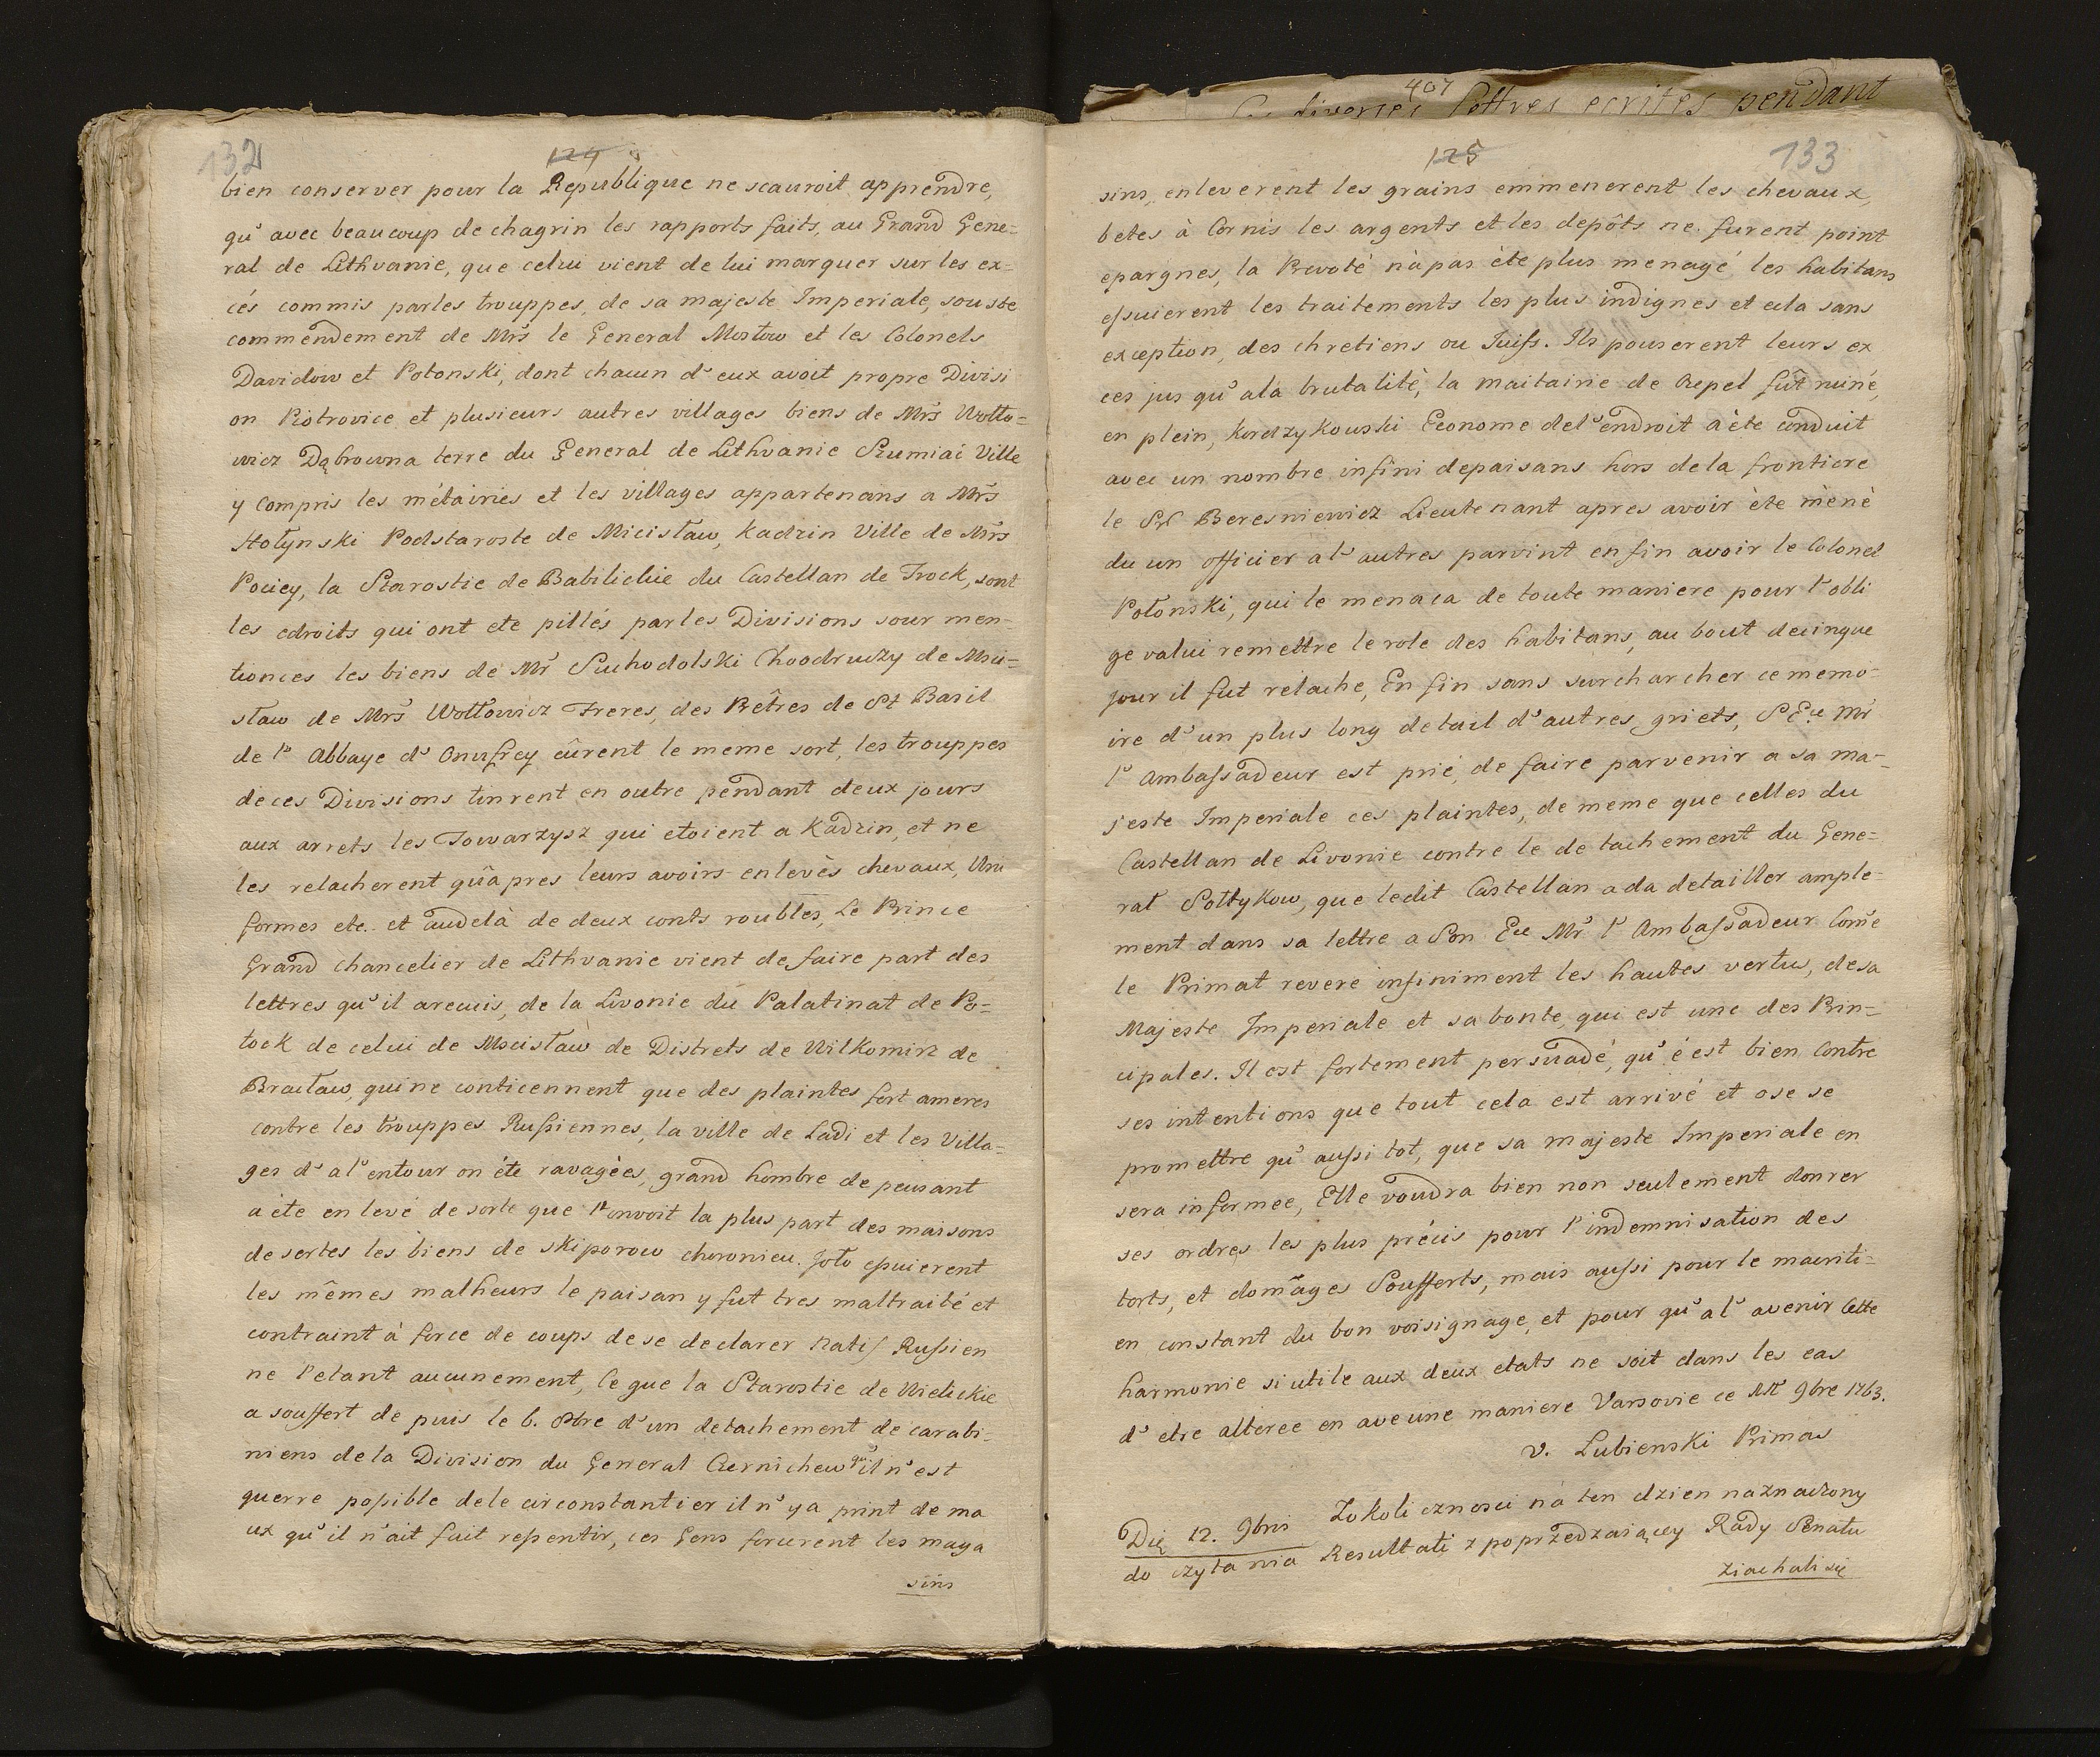 132
124
bien conserver pour la Republique ne scauroit apprendre,
qu'avec beaucoup de chagrin les rapports faits, au Grand Gene=
ral de Lithvanie, que celui vient de lui marquer sur les ex=
cés commis par les trouppes, de sa majeste Imperiale, sous le
commendement de Mrs le General Mostow et les Colonels
Davidow et Potonski, dont chacun d'eux avoit propre Divisi
on Piotrovice et plusieurs autres villages biens de Mrs Wołło=
wicz Dąbrowna terre du General de Lithvanie Szumiai Ville
y Compris les métairies et les villages appartenans a Mrs
Hołynski Podstaroste de Micisław, Kadzin Ville de Mrs
Pociey, la Starostie de Babilickie du Castellan de Trock, sont
les edroits qui ont ete pillés par les Divisions sour men-
tionees les biens de Mr Suchodolski Choodruczy de Msci=
sław de Mrs Wołłowicz Freres, des Prêtres de St Basil
de l'Abbaye d'Onufrey eûrent le meme sort, les trouppes
de ces Divisions tinrent en outre pendant deux jours
aux arrets les Towarzysz qui etoient a Kadzin, et ne
les relacherent qu'apres leurs avoirs enlevès chevaux, Uni
formes etc. et audelà de deux conts roubles, Le Prince
Grand chancelier de Lithvanie vient de faire part des
lettres qu'il arecuis, de la Livonie du Palatinat de Po=
tock de celui de Mscisław de Distrets de Wilkomirz de
Bracław, qui ne conticennent que des plaintes fort ameres
contre les trouppes Russiennes, la ville de Ladi et les Villa=
ges d'al'entour on éte ravagèes, grand hombre de peusant
a ète enlevé de sorte que l'onvoit la plus part des maisons
desertes les biens de skiporow choronieu. Joto essuierent
les mêmes malheurs le paisan y fut tres maltraité et
contraint à force de coups de se declarer Natif Russien
ne l'etant aucunement, Ce que la Starostie de Wielickie
a souffert de puis le 6. 8bre d'un detachement de carabi-
niens de la Division du General Czernichew qu'il n'est
guerre possible dele circonstantier il n'ya print de ma
ux qu'il n'ait fait ressentir, ces Gens forcerent les maga
sins
407
diverses lettres ecrites pendant
125
133
sins, enleverent les grains emmenerent les chevaux,
betes à Cornis les argents et les depôts ne furent point
epargnes, la Prevoté n'à pas ète plus menagé, les habitans
essuierent les traitements les plus indignes et cela sans
exception, des chretiens ou Juifs. Ils pouserent leurs ex
ces jus qu'ala brutalitè, la maitairie de Czepel fût ruinée
en plein, Kordzykowski Econome del'endroit à ète conduit
avec un nombre infini depaisans hors dela frontiere
le Sr Beresniewicz Lieutenant apres avoir ète mènè
du un officier al'autres parvint en fin avoir le Colonel
Potonski, qui le menaca de toute maniere pour l'obli
ge valui remettre le role des habitans, au bout decinque
jour il fut relache, En fin sans surcharcher ce memo-
ire d'un plus long detail d'autres griets, S Ece Mr
l'Ambassadeur est prié, de faire parvenir a sa ma-
jeste Imperiale ces plaintes, de meme que celles du
Castellan de Livonie contre le detachement du Gene=
ral Sołtykow, que ledit Castellan ada detailler ample=
ment dans sa lettre a Son Ece Mr l'Ambassadeur Come
le Primat revere infiniment les hautes vertus, desa
Majeste Imperiale et sa bonte, qui est une des Prin=
cipales. Il est fortement persuadé, qu'é est bien Contre
ses intentions que tout cela est arrivé et ose se
promettre qu'aussi tot, que sa majeste Imperiale en
sera informee, Elle voudra bien non seulement donrer
ses ordres les plus précis pour l'indemnisation des
torts, et domages Soufferts, mais aussi pour le mainti=
en constant du bon voisignage, et pour qu'al'avenir Cette
harmonie si utile aux deux etats ne soit dans les cas
d'etre alteree en aveune maniere Varsovie ce 9bre 1763.
v. Lubienski Primas
Die 12. 9bris Zokolicznosci na ten dzien naznaczony
do czytania Resultati z poprzedzaiącey Rady Senatu
ziachali się